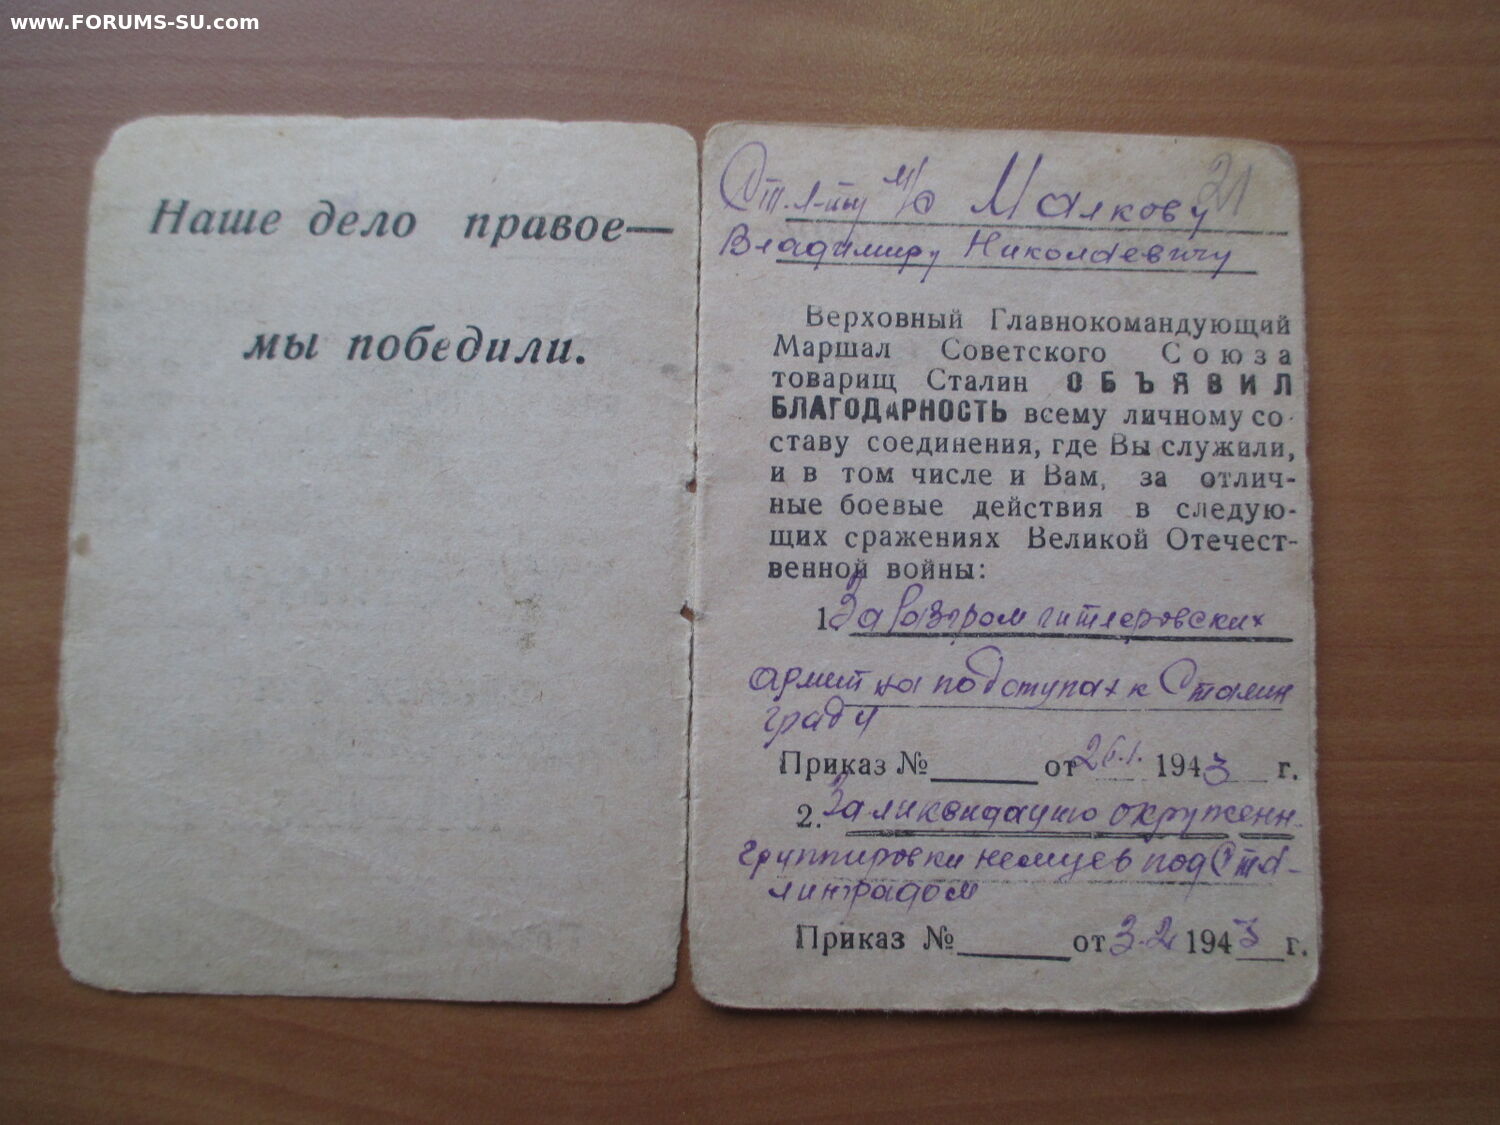 www.FORUMS-SU.com
Наше дело правое—
мы победили.
21
Ст. л-ту м/с Малкову
Владимиру Николаевичу
Верховный Главнокомандующий
Маршал Советского Союза
товарищ Сталин ОБЪЯВИЛ
БЛАГОДАРНОСТЬ всему личному со-
ставу соединения, где Вы служили,
и в том числе и Вам, за отлич-
ные боевые действия в следую-
щих сражениях Великой Отечест-
венной войны:
1. За разгром гитлеровских
армий на подступах к Сталин
граду
Приказ № от 1943 г.
2. За ликвидацию окруженн.
группировки немцев под Ста-
линградом
Приказ № от 3.2 1943 г.